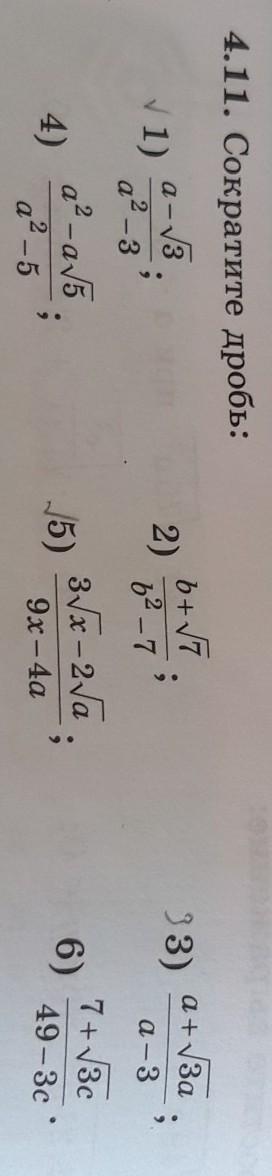 4.11. Сократите дробь:
√ 1) \frac{a-\sqrt{3}}{a^2-3}; 2) \frac{b+\sqrt{7}}{b^2-7}; 3 3) \frac{a+\sqrt{3a}}{a-3};
4) \frac{a^2-a\sqrt{5}}{a^2-5}; √ 5) \frac{3\sqrt{x}-2\sqrt{a}}{9x-4a}; 6) \frac{7+\sqrt{3c}}{49-3c}.